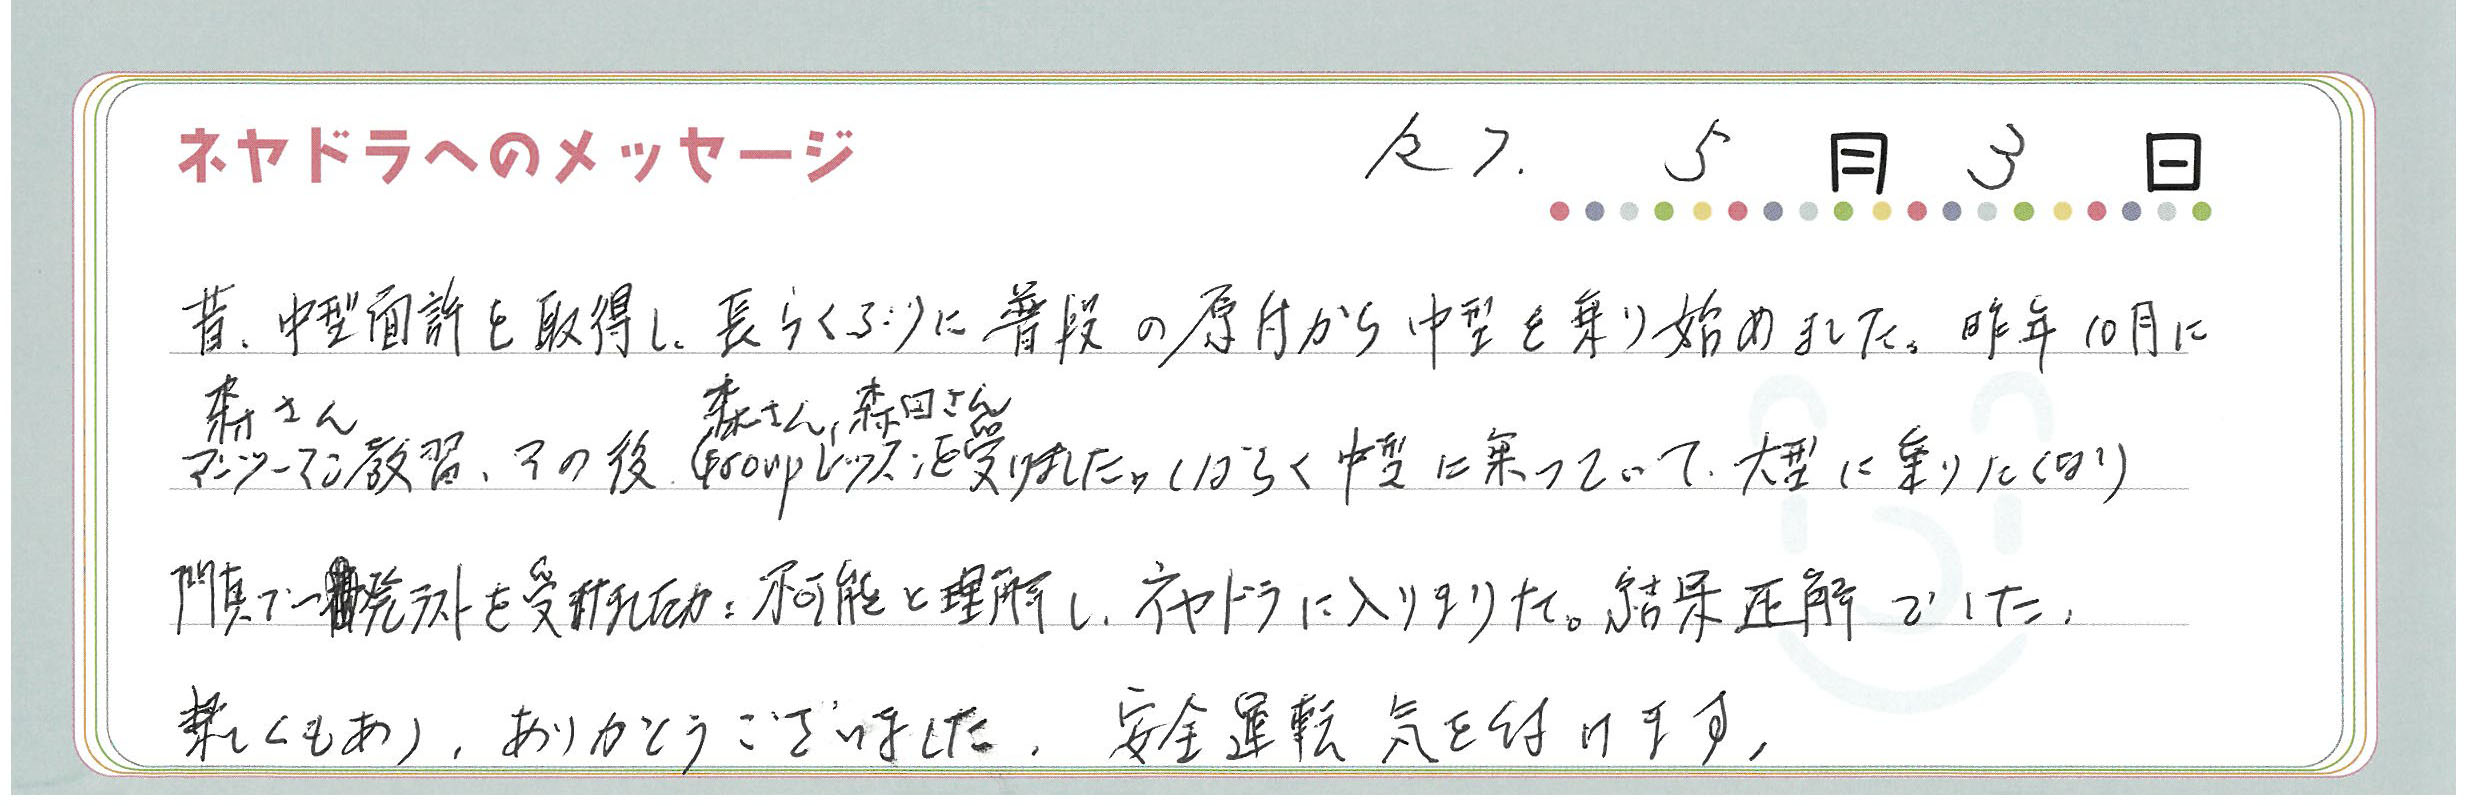 ネヤドラへのメッセージ
R7. 5月3日
昔、中型面許を取得し、長らくぶりに普段の原付から中型を乗り始めました。昨年10月に
森さん 森さん、森田さん
マンツーマン教習、その後、Groupレッスンを受けました。しばらく中型に乗っていて、大型に乗りたくなり
門真で一発テストを受けましたが、不可能と理解し、ネヤドラに入りました。結果正解でした。
楽しくもあり、ありがとうございました。安全運転気を付けます。